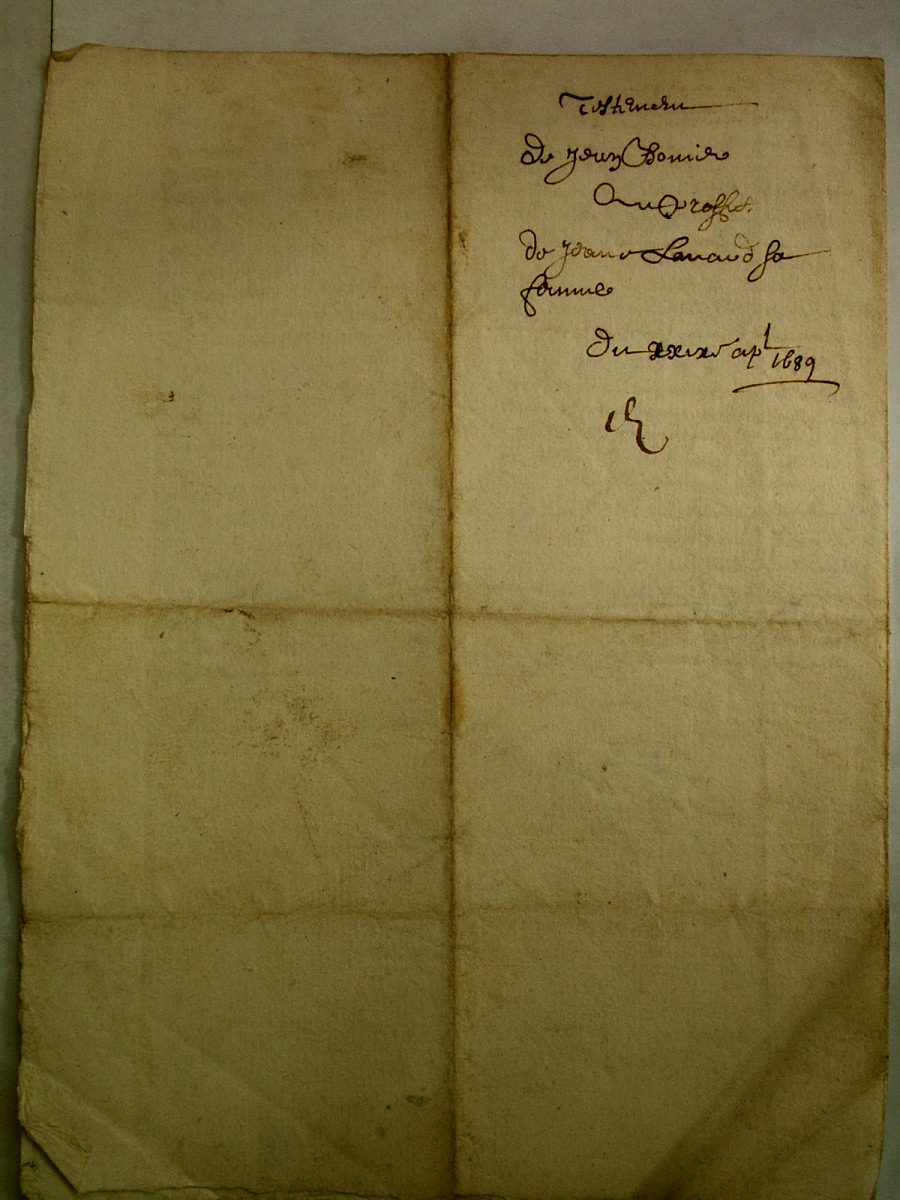 Testemen
de Jean Chomier
Au Proffict
de Jeane Lanaud sa
femme
du xxixe apl 1689